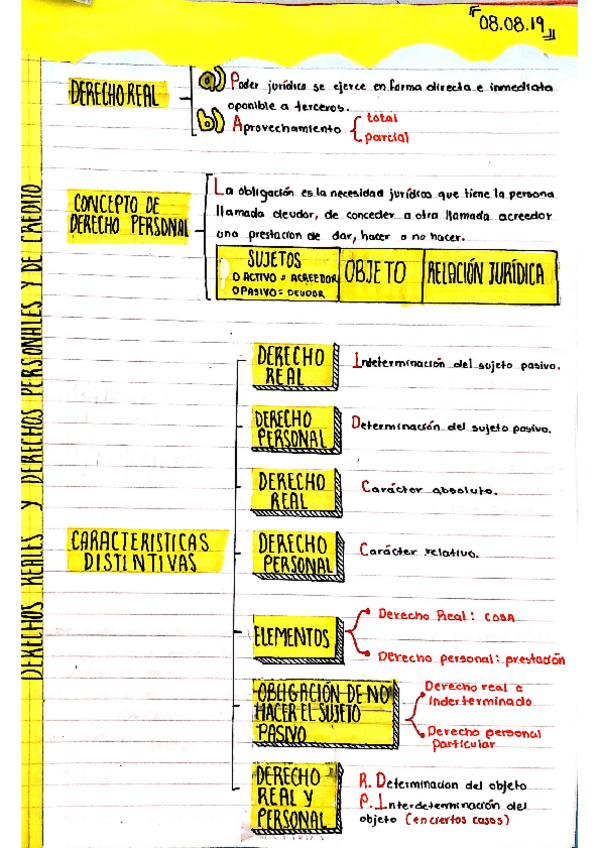 08.08.19
DERECHOS REALES Y DERECHOS PERSONALES Y DE CREDITO
DERECHO REAL
a) Poder jurídico se ejerce en forma directa e inmediata
oponible a terceros.
b) Aprovechamiento
total
parcial
CONCEPTO DE
DERECHO PERSONAL
La obligación es la necesidad jurídica que tiene la persona
llamada deudor, de conceder a otra llamada acreedor
una prestación de dar, hacer o no hacer.
SUJETOS
O ACTIVO = ACREEDOR
O PASIVO = DEUDOR
OBJETO
RELACIÓN JURÍDICA
CARACTERISTICAS
DISTINTIVAS
DERECHO
REAL
Indeterminación del sujeto pasivo.
DERECHO
PERSONAL
Determinación del sujeto pasivo.
DERECHO
REAL
Carácter absoluto.
DERECHO
PERSONAL
Carácter relativo.
ELEMENTOS
Derecho Real: COSA
Derecho personal: prestación
OBLIGACIÓN DE NO
HACER EL SUJETO
PASIVO
Derecho real e
inderterminado
Derecho personal
Particular
DERECHO
REAL Y
PERSONAL
R. Determinacion del objeto
P. Interdeterminación del
objeto (en ciertos casos)